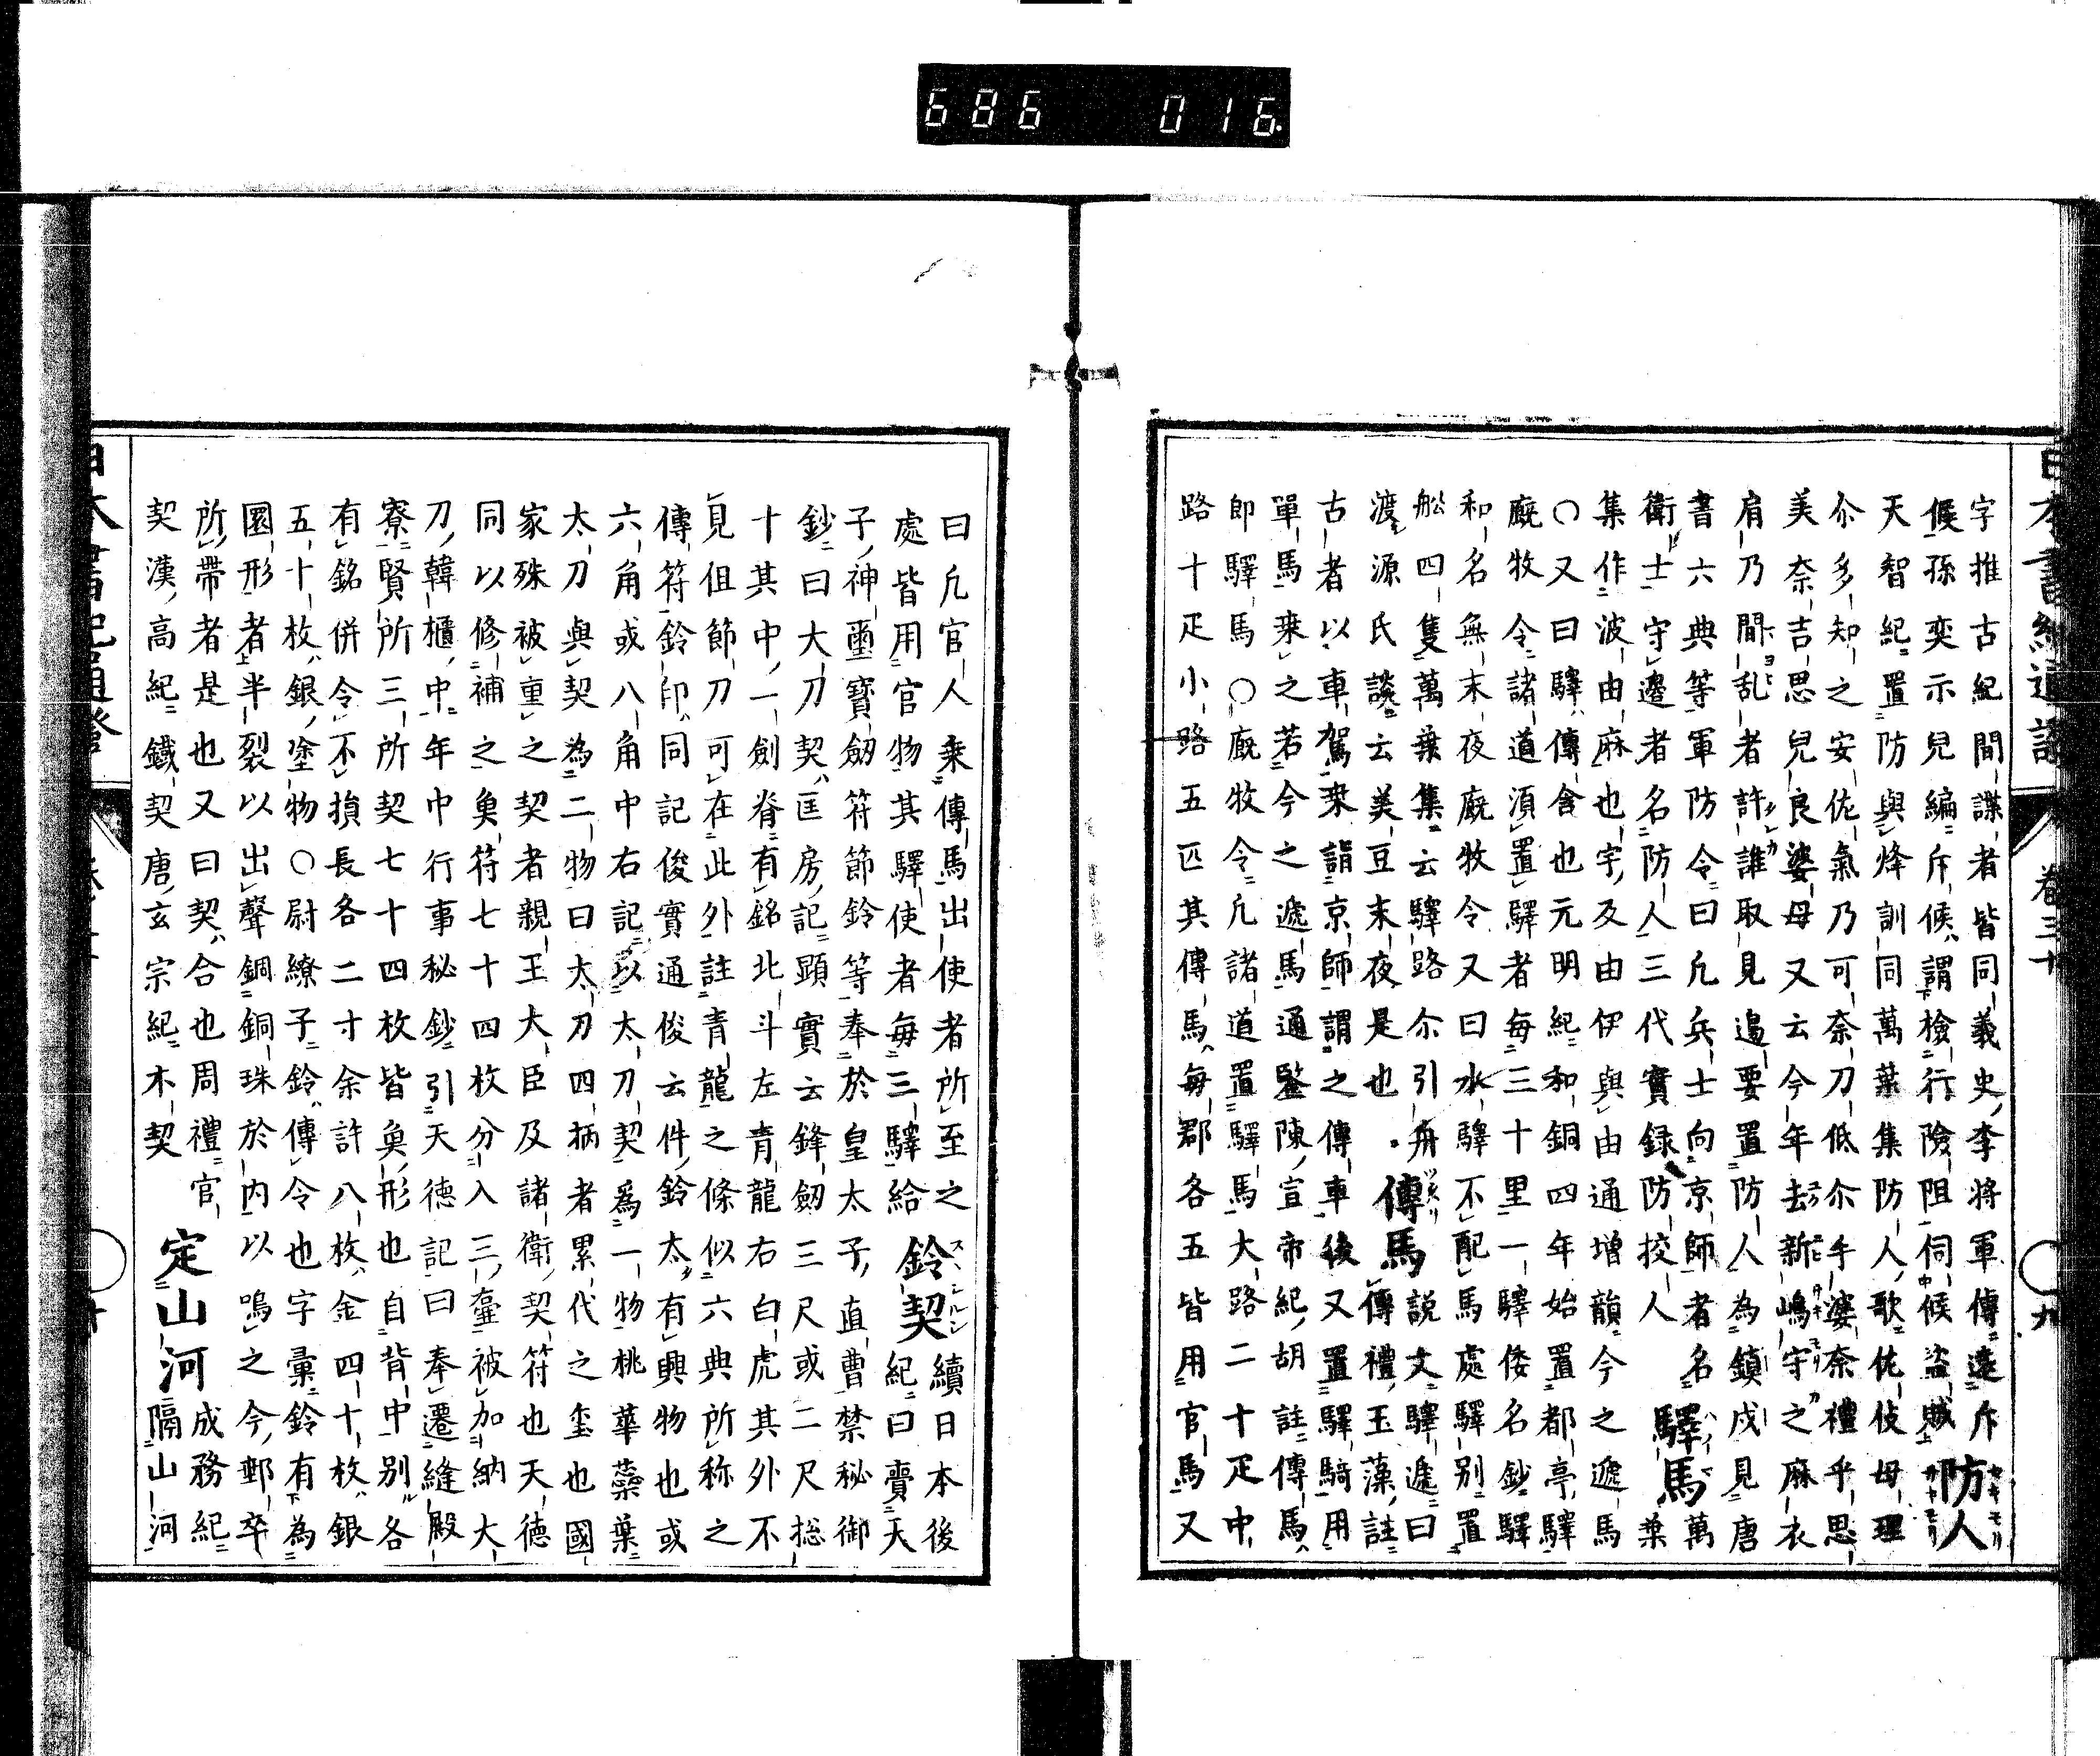 686 016
日本書紀通證 卷三十 九
字推古紀間諜者皆同義史李將軍傳遠斥防人
候孫奕示兒編斥候謂檢行險阻伺候盜賊
天智紀置防與烽訓同萬葉集防人歌佐伎母理
尒多知之安佐氣乃可奈刀低尒手婆奈禮乎思
美奈吉思兒良婆母又云今年去新嶋守之麻衣
肩乃間乱者許誰取見邉要置防人為鎮戍見唐
書六典等軍防令曰凢兵士向京師者名
衛士守邊者名防人三代實録防挍人驛馬萬葉
集作波由麻也宇及由伊與由通增韻今之遞馬
〇又曰驛傳舎也元明紀和銅四年始置都亭驛
廐牧令諸道湏置驛者每三十里一驛倭名鈔驛
和名無末夜廐牧令又曰水驛不配馬處驛別置
舩四隻萬葉集云驛路尒引舟說文驛遞曰
渡源氏談云美豆末夜是也傳馬傳禮玉藻註
古者以車駕乗詣京師謂之傳車後又置驛騎用
單馬乗之若今之遞馬通鑒陳宣帝紀胡註傳馬
即驛馬〇廐牧令凢諸道置驛馬大路二十疋中
路十疋小路五匹其傳馬每郡各五皆用官馬又
曰凢官人乗傳馬出使者所至之
處皆用官物其驛使者每三驛給鈴契續日本後紀曰賷天
子神璽寶劒符節鈴等奉於皇太子直曹禁秘御
鈔曰大刀契匡房記顕實云鋒劒三尺或二尺捴
十其中一劍脊有銘北斗左青龍右白虎其外不
見但節刀可在此外註青龍之條似六典所称之
傳符鈴印同記俊實通俊云件鈴太有興物也或
六角或八角中右記以太刀契爲一物桃華蘂葉
太刀與契為二物曰太刀四柄者累代之玺也國
家殊被重之契者親王大臣及諸衛契符也天德
同以修補之奐符七十四枚分入三臺被加納大
刀韓櫃中年中行事秘鈔引天德記曰奉遷縫殿
寮賢所三所契七十四枚皆奐形也自背中別各
有銘併令不損長各二寸余許八枚金四十枚銀
五十枚銀塗物〇尉繚子鈴傳令也字彙鈴有為
圜形者半裂以出聲銅銅珠於内以嗚之今郵卒
所帶者是也又曰契合也周禮官定山河成務紀
契漢高紀鐵契唐玄宗紀木契隔山河
日本書紀通證 十